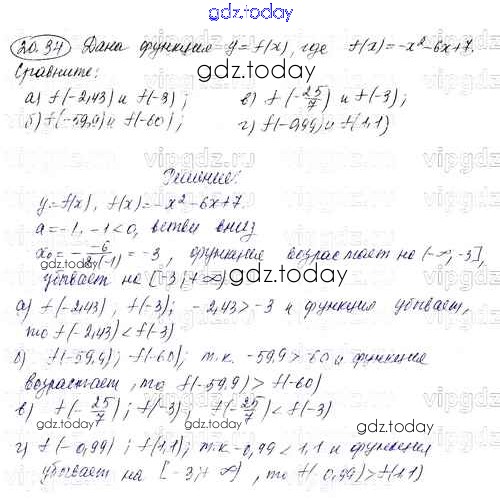 gdz.today
20.34 Дана функция y=f(x), где f(x)=-x²-6x+7.
Сравните:
gdz.today
а) f(-2,43) и f(-3); в) f(-25/7) и f(-3);
б) f(-59,9) и f(-60); г) f(-0,99) и f(1,1)
vipgdz.ru
Решение:
y=f(x), f(x)=-x²-6x+7.
a=-1, -1<0, ветви вниз
gdz.today
x₀=-(-6)/(2·(-1))=-3, функция возрастает на (-∞;-3],
убывает на [-3;+∞).
gdz.today
а) f(-2,43), f(-3); -2,43>-3 и функция убывает,
то f(-2,43)<f(-3)
gdz.today
б) f(-59,9); f(-60); т.к. -59,9>-60 и функция
возрастает, то f(-59,9)>f(-60)
в) f(-25/7); f(-3); f(-25/7)<f(-3)
gdz.today
г) f(-0,99); f(1,1); т.к. -0,99<1,1 и функция
убывает на [-3;+∞), то f(-0,99)>f(1,1)
gdz.today